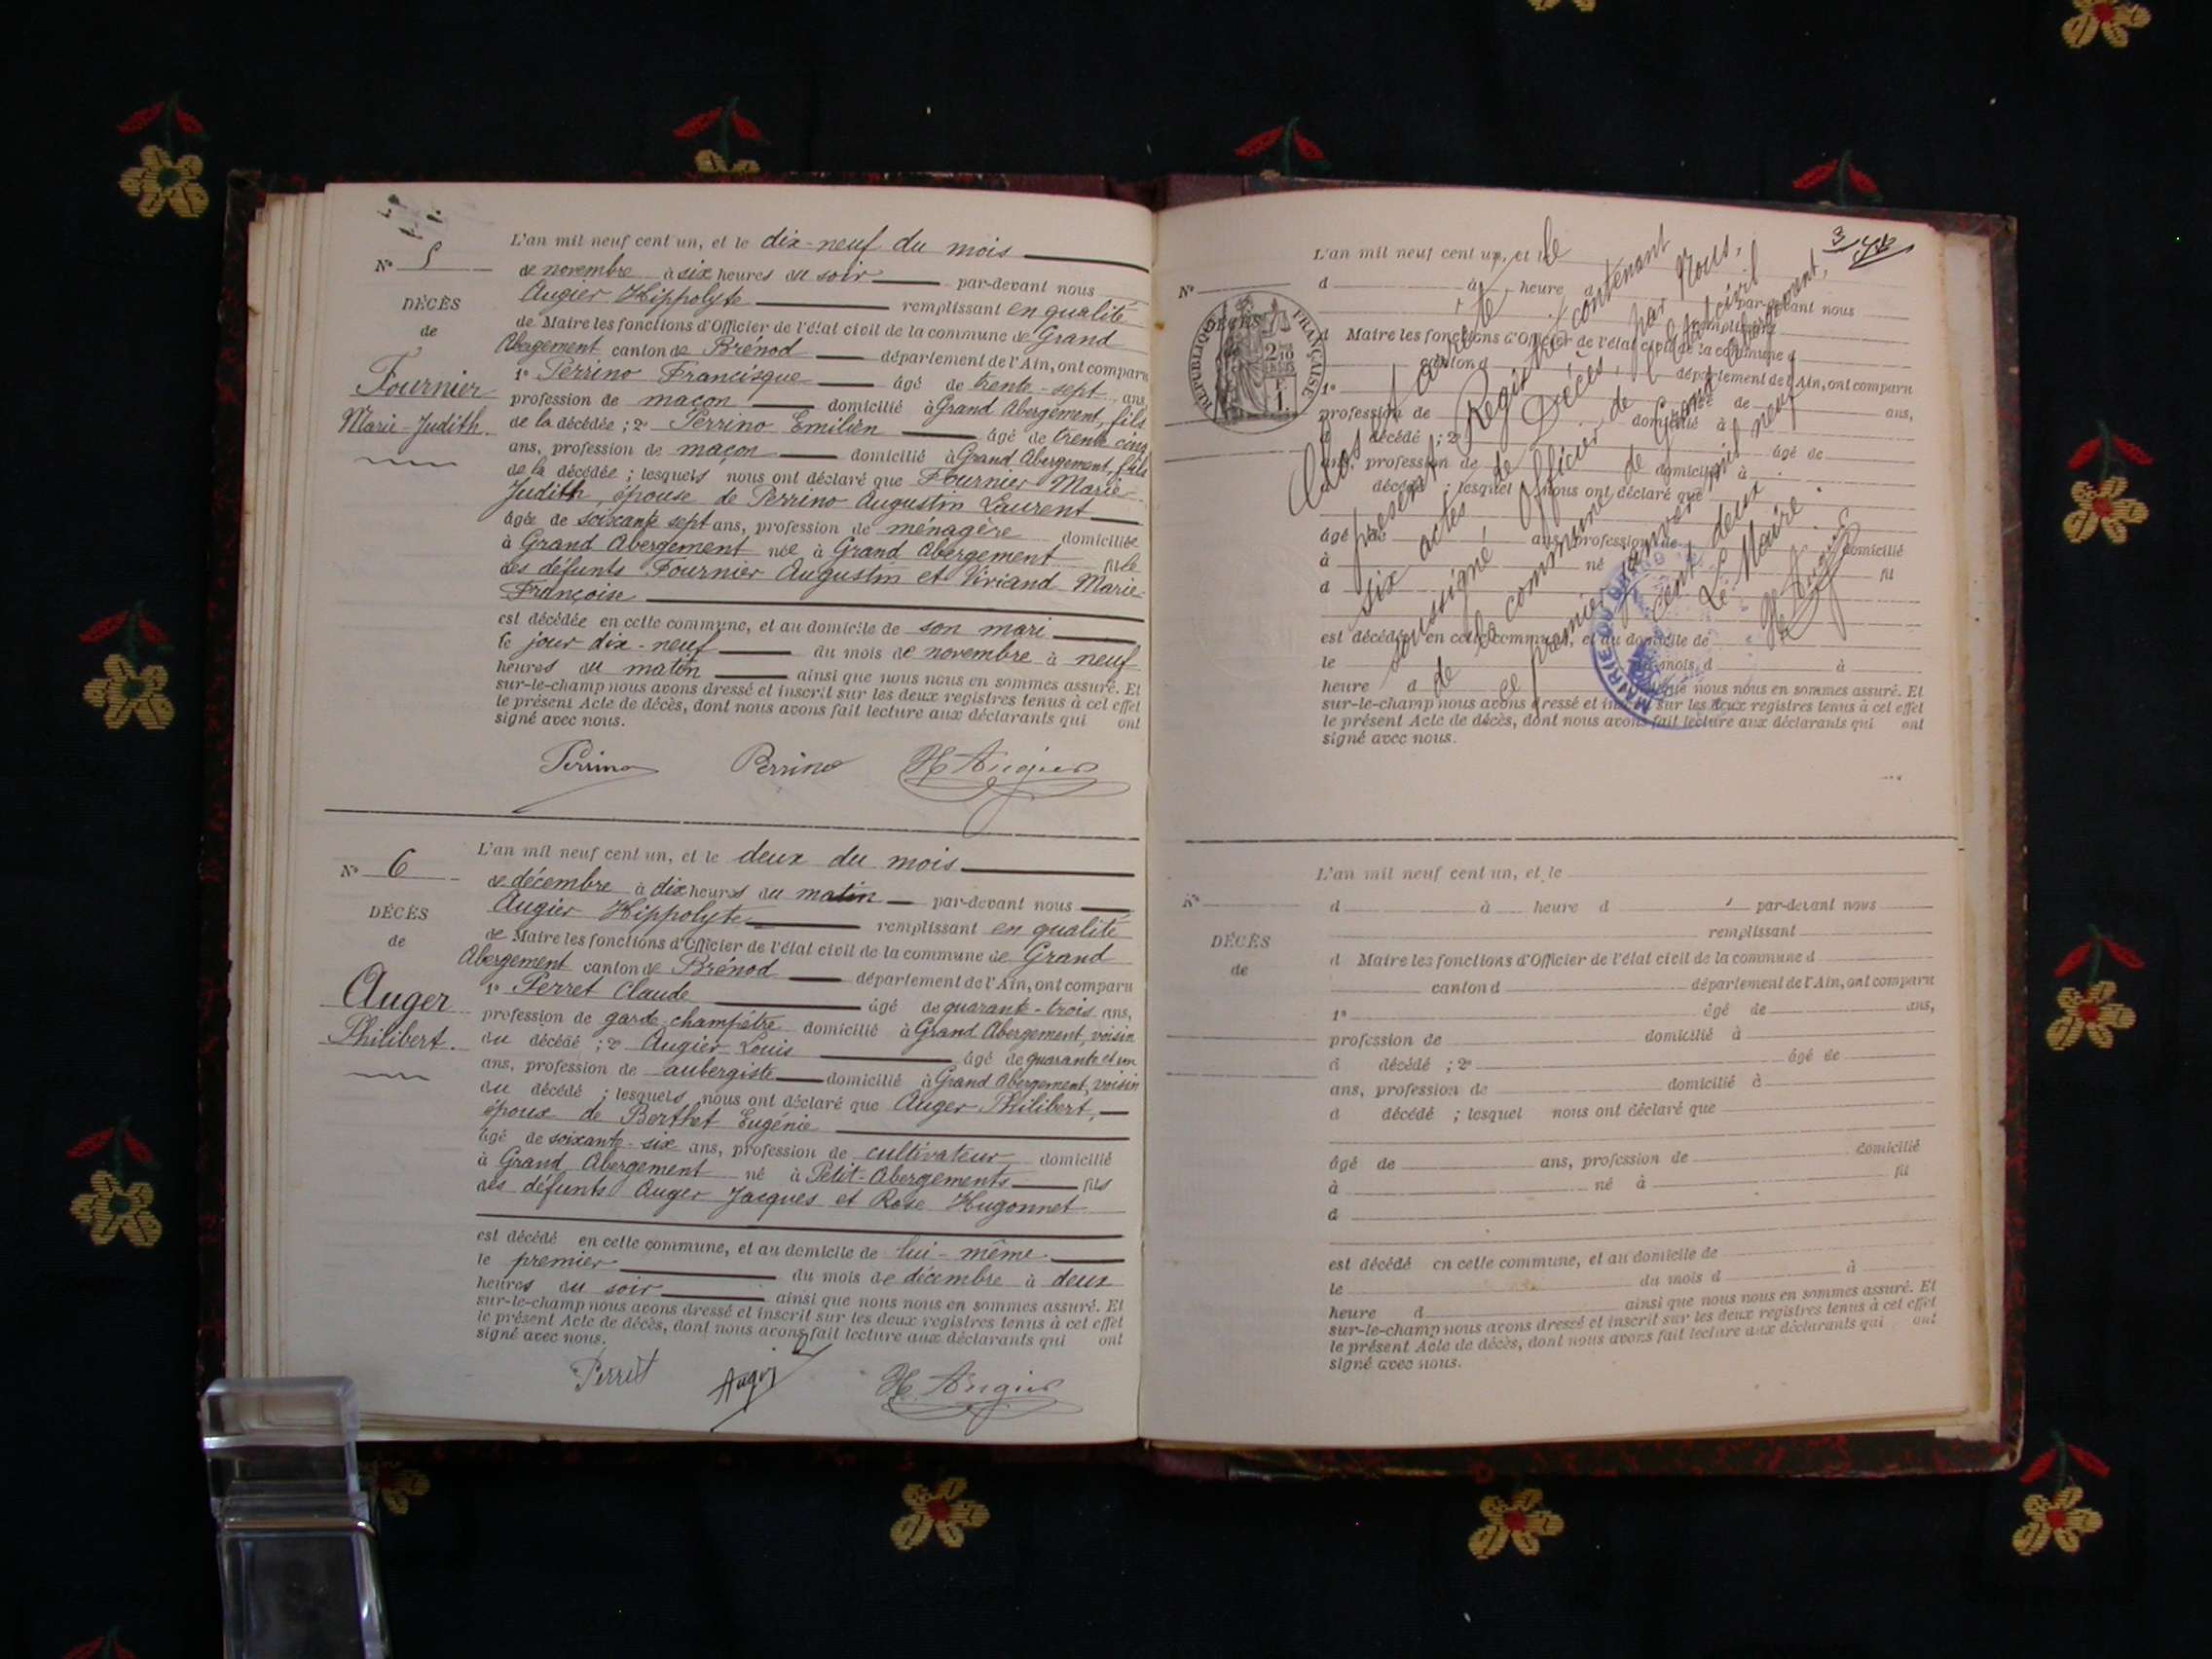 L'an mil neuf cent un, et le dix-neuf du mois
N° 5
de novembre à six heures du soir par-devant nous
Augier Hippolyte remplissant en qualité
DÉCÈS
de
Fournier
Marie-Judith.
de Maire les fonctions d'Officier de l'état civil de la commune de Grand
Abergement canton de Brénod département de l'Ain, ont comparu
1° Perrino Francisque âgé de trente-sept ans,
profession de maçon domicilié à Grand Abergement, fils
de la décédée ; 2° Perrino Emilien âgé de trente cinq
ans, profession de maçon domicilié à Grand Abergement, fils
de la décédée ; lesquels nous ont déclaré que Fournier Marie
Judith, épouse de Perrino Augustin Laurent
âgée de soixante sept ans, profession de ménagère domiciliée
à Grand Abergement née à Grand Abergement fille
des défunts Fournier Augustin et Viviand Marie
Françoise
est décédée en cette commune, et au domicile de son mari
le jour dix-neuf du mois de novembre à neuf
heures du matin ainsi que nous nous en sommes assuré. Et
sur-le-champ nous avons dressé et inscrit sur les deux registres tenus à cet effet
le présent Acte de décès, dont nous avons fait lecture aux déclarants qui ont
signé avec nous.
Perrino Perrino H Augier
L'an mil neuf cent un, et le deux du mois
N° 6
de décembre à dix heures du matin par-devant nous
Augier Hippolyte remplissant en qualité
DÉCÈS
de
Auger
Philibert.
de Maire les fonctions d'Officier de l'état civil de la commune de Grand
Abergement canton de Brénod département de l'Ain, ont comparu
1° Perret Claude âgé de quarante-trois ans,
profession de garde-champêtre domicilié à Grand Abergement, voisin
du décédé ; 2° Augier Louis âgé de quarante et un
ans, profession de aubergiste domicilié à Grand Abergement, voisin
du décédé ; lesquels nous ont déclaré que Auger Philibert,
époux de Berthet Eugénie
âgé de soixante-six ans, profession de cultivateur domicilié
à Grand Abergement né à Petit-Abergements fils
des défunts Auger Jacques et Rose Hugonnet
est décédé en cette commune, et au domicile de lui-même.
le premier du mois de décembre à deux
heures du soir ainsi que nous nous en sommes assuré. Et
sur-le-champ nous avons dressé et inscrit sur les deux registres tenus à cet effet
le présent Acte de décès, dont nous avons fait lecture aux déclarants qui ont
signé avec nous.
Perret Augier H. Augier
L'an mil neuf cent un, et le
N°
d à heure d par-devant nous
remplissant
DÉCÈS
RÉPUBLIQUE FRANÇAISE
2/10
d Maire les fonctions d'Officier de l'état civil de la commune d
canton d département de l'Ain, ont comparu
1° âgé de ans,
profession de domicilié à
d décédé ; 2° âgé de
ans, profession de domicilié à
d décédé ; lesquel nous ont déclaré que
âgé de ans, profession de domicilié
à né à fil
d
est décédé en cette commune, et au domicile de
le du mois d à
heure d ainsi que nous nous en sommes assuré. Et
sur-le-champ nous avons dressé et inscrit sur les deux registres tenus à cet effet
le présent Acte de décès, dont nous avons fait lecture aux déclarants qui ont
signé avec nous.
Clos et arrêté le
présent Registre contenant
six actes de Décès, par Nous,
soussigné Officier de l'état civil
de la commune de Grand Abergement,
ce premier janvier mil neuf
cent deux.
Le Maire.
H Augier
MAIRIE DU GRAND
L'an mil neuf cent un, et le
N°
d à heure d par-devant nous
remplissant
DÉCÈS
de
d Maire les fonctions d'Officier de l'état civil de la commune d
canton d département de l'Ain, ont comparu
1° âgé de ans,
profession de domicilié à
d décédé ; 2° âgé de
ans, profession de domicilié à
d décédé ; lesquel nous ont déclaré que
âgé de ans, profession de domicilié
à né à fil
d
est décédé en cette commune, et au domicile de
le du mois d à
heure d ainsi que nous nous en sommes assuré. Et
sur-le-champ nous avons dressé et inscrit sur les deux registres tenus à cet effet
le présent Acte de décès, dont nous avons fait lecture aux déclarants qui ont
signé avec nous.